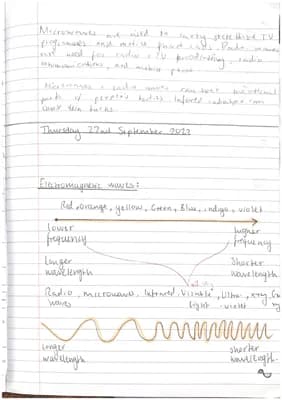 Microwaves are used to carry satellite T.V
programmes and mobile phone calls. Radio waves
are used for radio & T.V broadcasting, radio
communications, and mobile phones
Microwaves & radio waves can heat
parts of people's bodies. Infrared radiation can
Thursday 22nd September 2022
Electromagnetic waves:
Red, orange, yellow, Green, Blue, indigo, violet
lower frequency higher frequency
Longer wavelength Shorter wavelength
Radio waves, microwaves, Infrared, Visible light, Ultra-violet, x-ray,
longer wavelength shorter wavelength